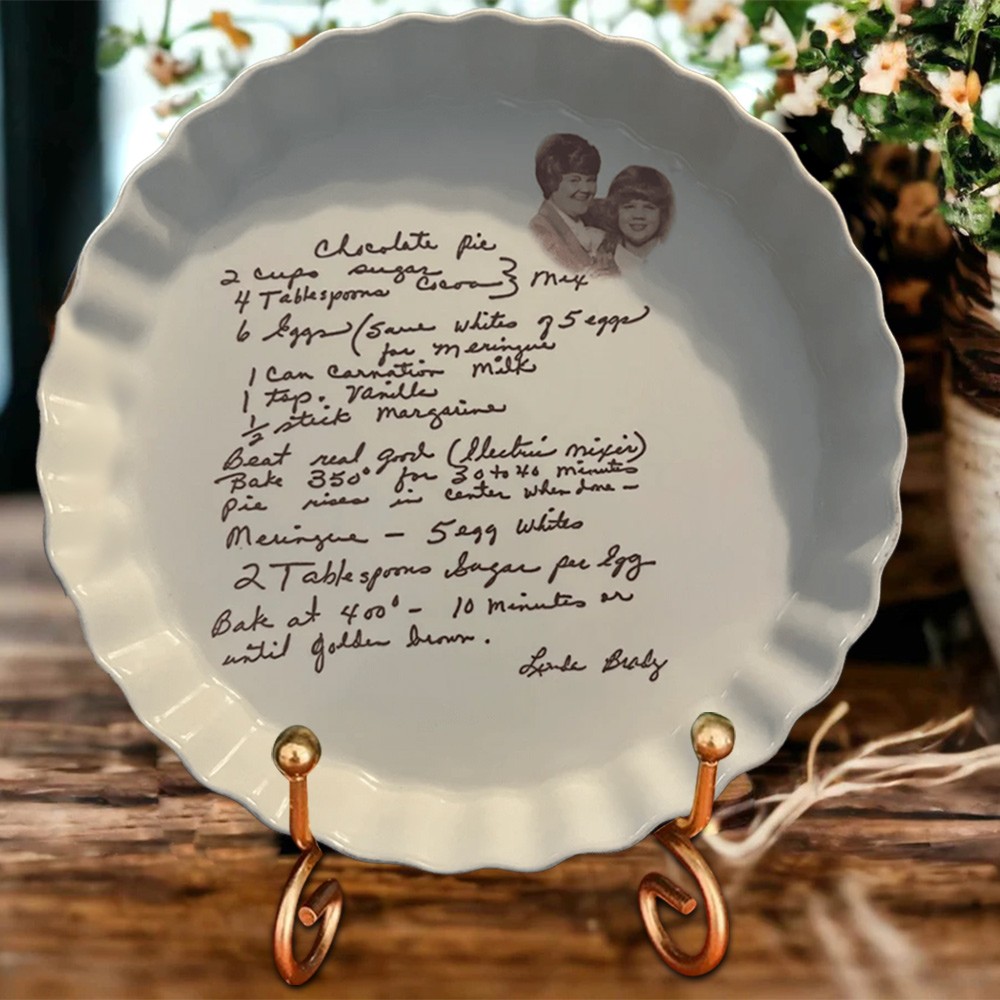 Chocolate Pie
2 cups sugar
4 Tablespoons Cocoa } Mix
6 Eggs (Save whites of 5 eggs
for Meringue
1 Can Carnation Milk
1 tsp. Vanilla
1/2 stick Margarine
Beat real good (Electric mixer)
Bake 350° for 30 to 40 minutes
Pie rises in center when done -
Meringue - 5 egg whites
2 Tablespoons Sugar per Egg
Bake at 400° - 10 minutes or
until golden brown.
Linda Brady